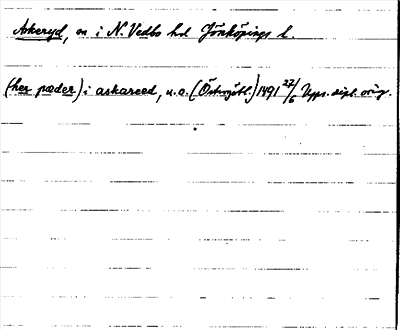 Askeryd, sn i N. Vedbo hd Jönköpings l.
(her pæder) i askareed, u.o. (Östergötl.) 1491 22/6 Upps. dipl. orig.